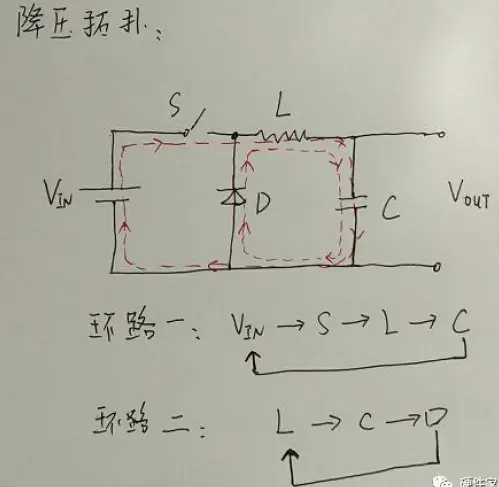 降压拓扑：
S L
V_IN D C V_OUT
环路一： V_IN → S → L → C
环路二： L → C → D
硬件家